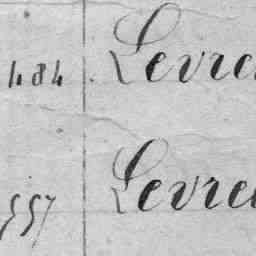 484 Levre
557 Levre